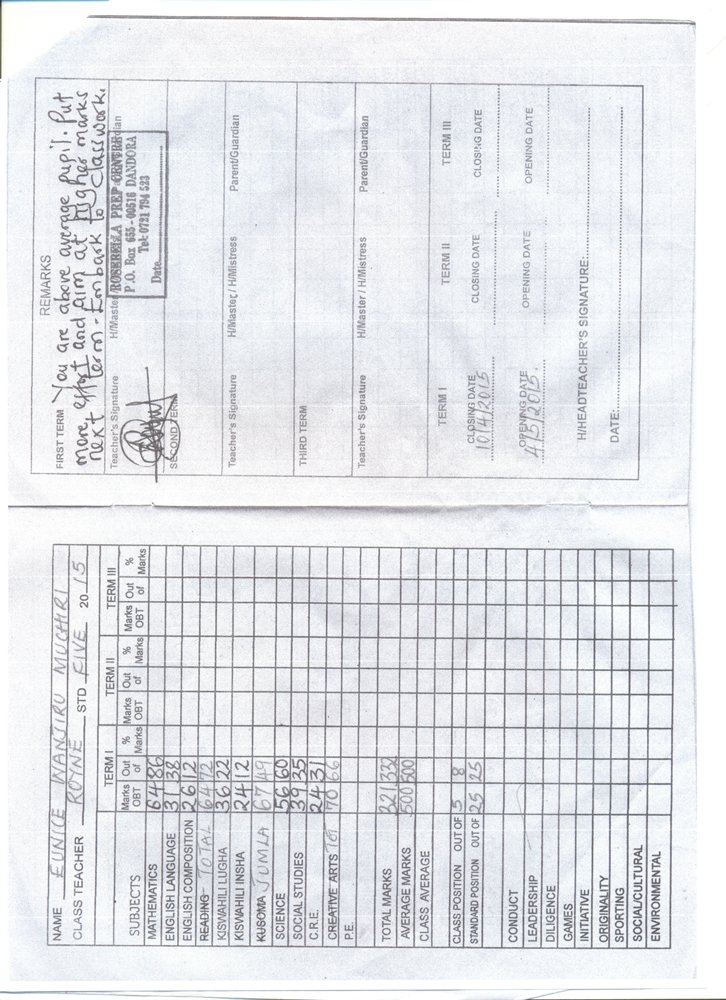 NAME EUNICE WANJIRU MUCHIRI
CLASS TEACHER ROYNE STD FIVE 20 15
SUBJECTS TERM I TERM II TERM III
Marks OBT Out of % Marks Marks OBT Out of % Marks Marks OBT Out of % Marks
MATHEMATICS 64 86
ENGLISH LANGUAGE 31 38
ENGLISH COMPOSITION 26 12
READING TOTAL 64 72
KISWAHILI LUGHA 36 22
KISWAHILI INSHA 24 12
KUSOMA JUMLA 67 49
SCIENCE 56 60
SOCIAL STUDIES 39 35
C.R.E. 24 31
CREATIVE ARTS TOT 70 66
P.E.
TOTAL MARKS 321 332
AVERAGE MARKS 500 500
CLASS AVERAGE
CLASS POSITION OUT OF 5 8
STANDARD POSITION OUT OF 25 25
CONDUCT
LEADERSHIP
DILIGENCE
GAMES
INITIATIVE
ORIGINALITY
SPORTING
SOCIAL/CULTURAL
ENVIRONMENTAL
REMARKS
FIRST TERM You are above average pupil. Put
more effort and aim at higher marks
next term - Embark to classwork.
Teacher's Signature H/Master
ROSEBELLA PREP CENTRE
P.O. Box 655 - 00516 DANDORA
Tel: 0721 754 523
Date
SECOND TERM
Teacher's Signature H/Master / H/Mistress Parent/Guardian
THIRD TERM
Teacher's Signature H/Master / H/Mistress Parent/Guardian
TERM I TERM II TERM III
CLOSING DATE CLOSING DATE CLOSING DATE
10/4/2015
OPENING DATE OPENING DATE OPENING DATE
4/5/2015.
H/HEADTEACHER'S SIGNATURE:
DATE: